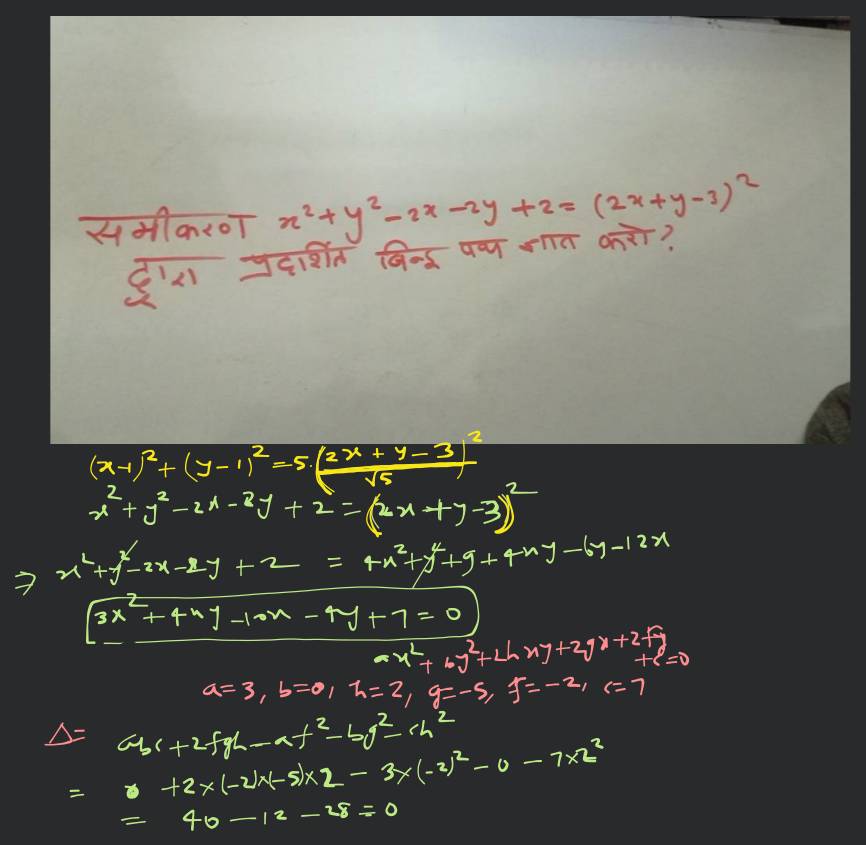 समीकरण x²+y²-2x-2y+2=(2x+y-3)²
द्वारा प्रदर्शित बिन्दु पथ ज्ञात करो?
(x-1)²+(y-1)²=5.((2x+y-3)/√5)²
x²+y²-2x-2y+2=(2x+y-3)²
⇒ x²+y²-2x-2y+2 = 4x²+y²+9+4xy-6y-12x
3x²+4xy-10x-4y+7=0
ax²+by²+2hxy+2gx+2fy+c=0
a=3, b=0, h=2, g=-5, f=-2, c=7
Δ= abc+2fgh-af²-bg²-ch²
= 0 +2×(-2)×(-5)×2-3×(-2)²-0-7×2²
= 40-12-28=0